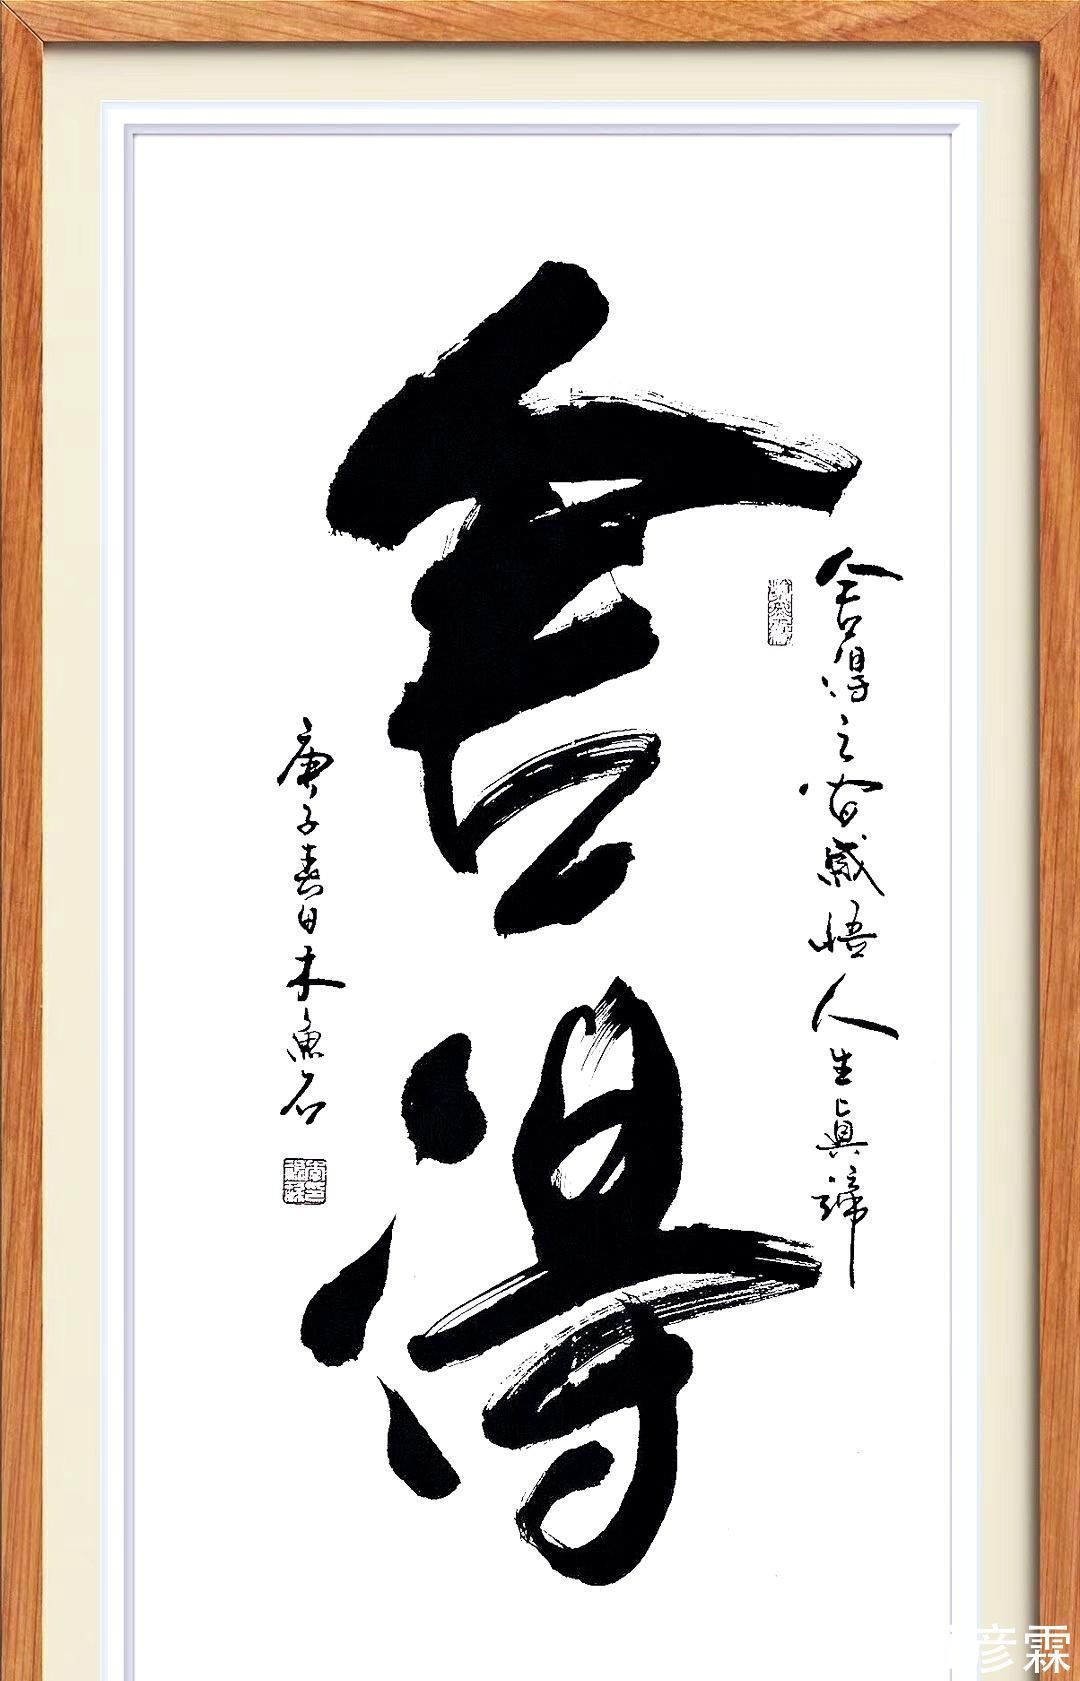 舍得
舍得之间感悟人生真諦
庚子春日木魚石
彦霖